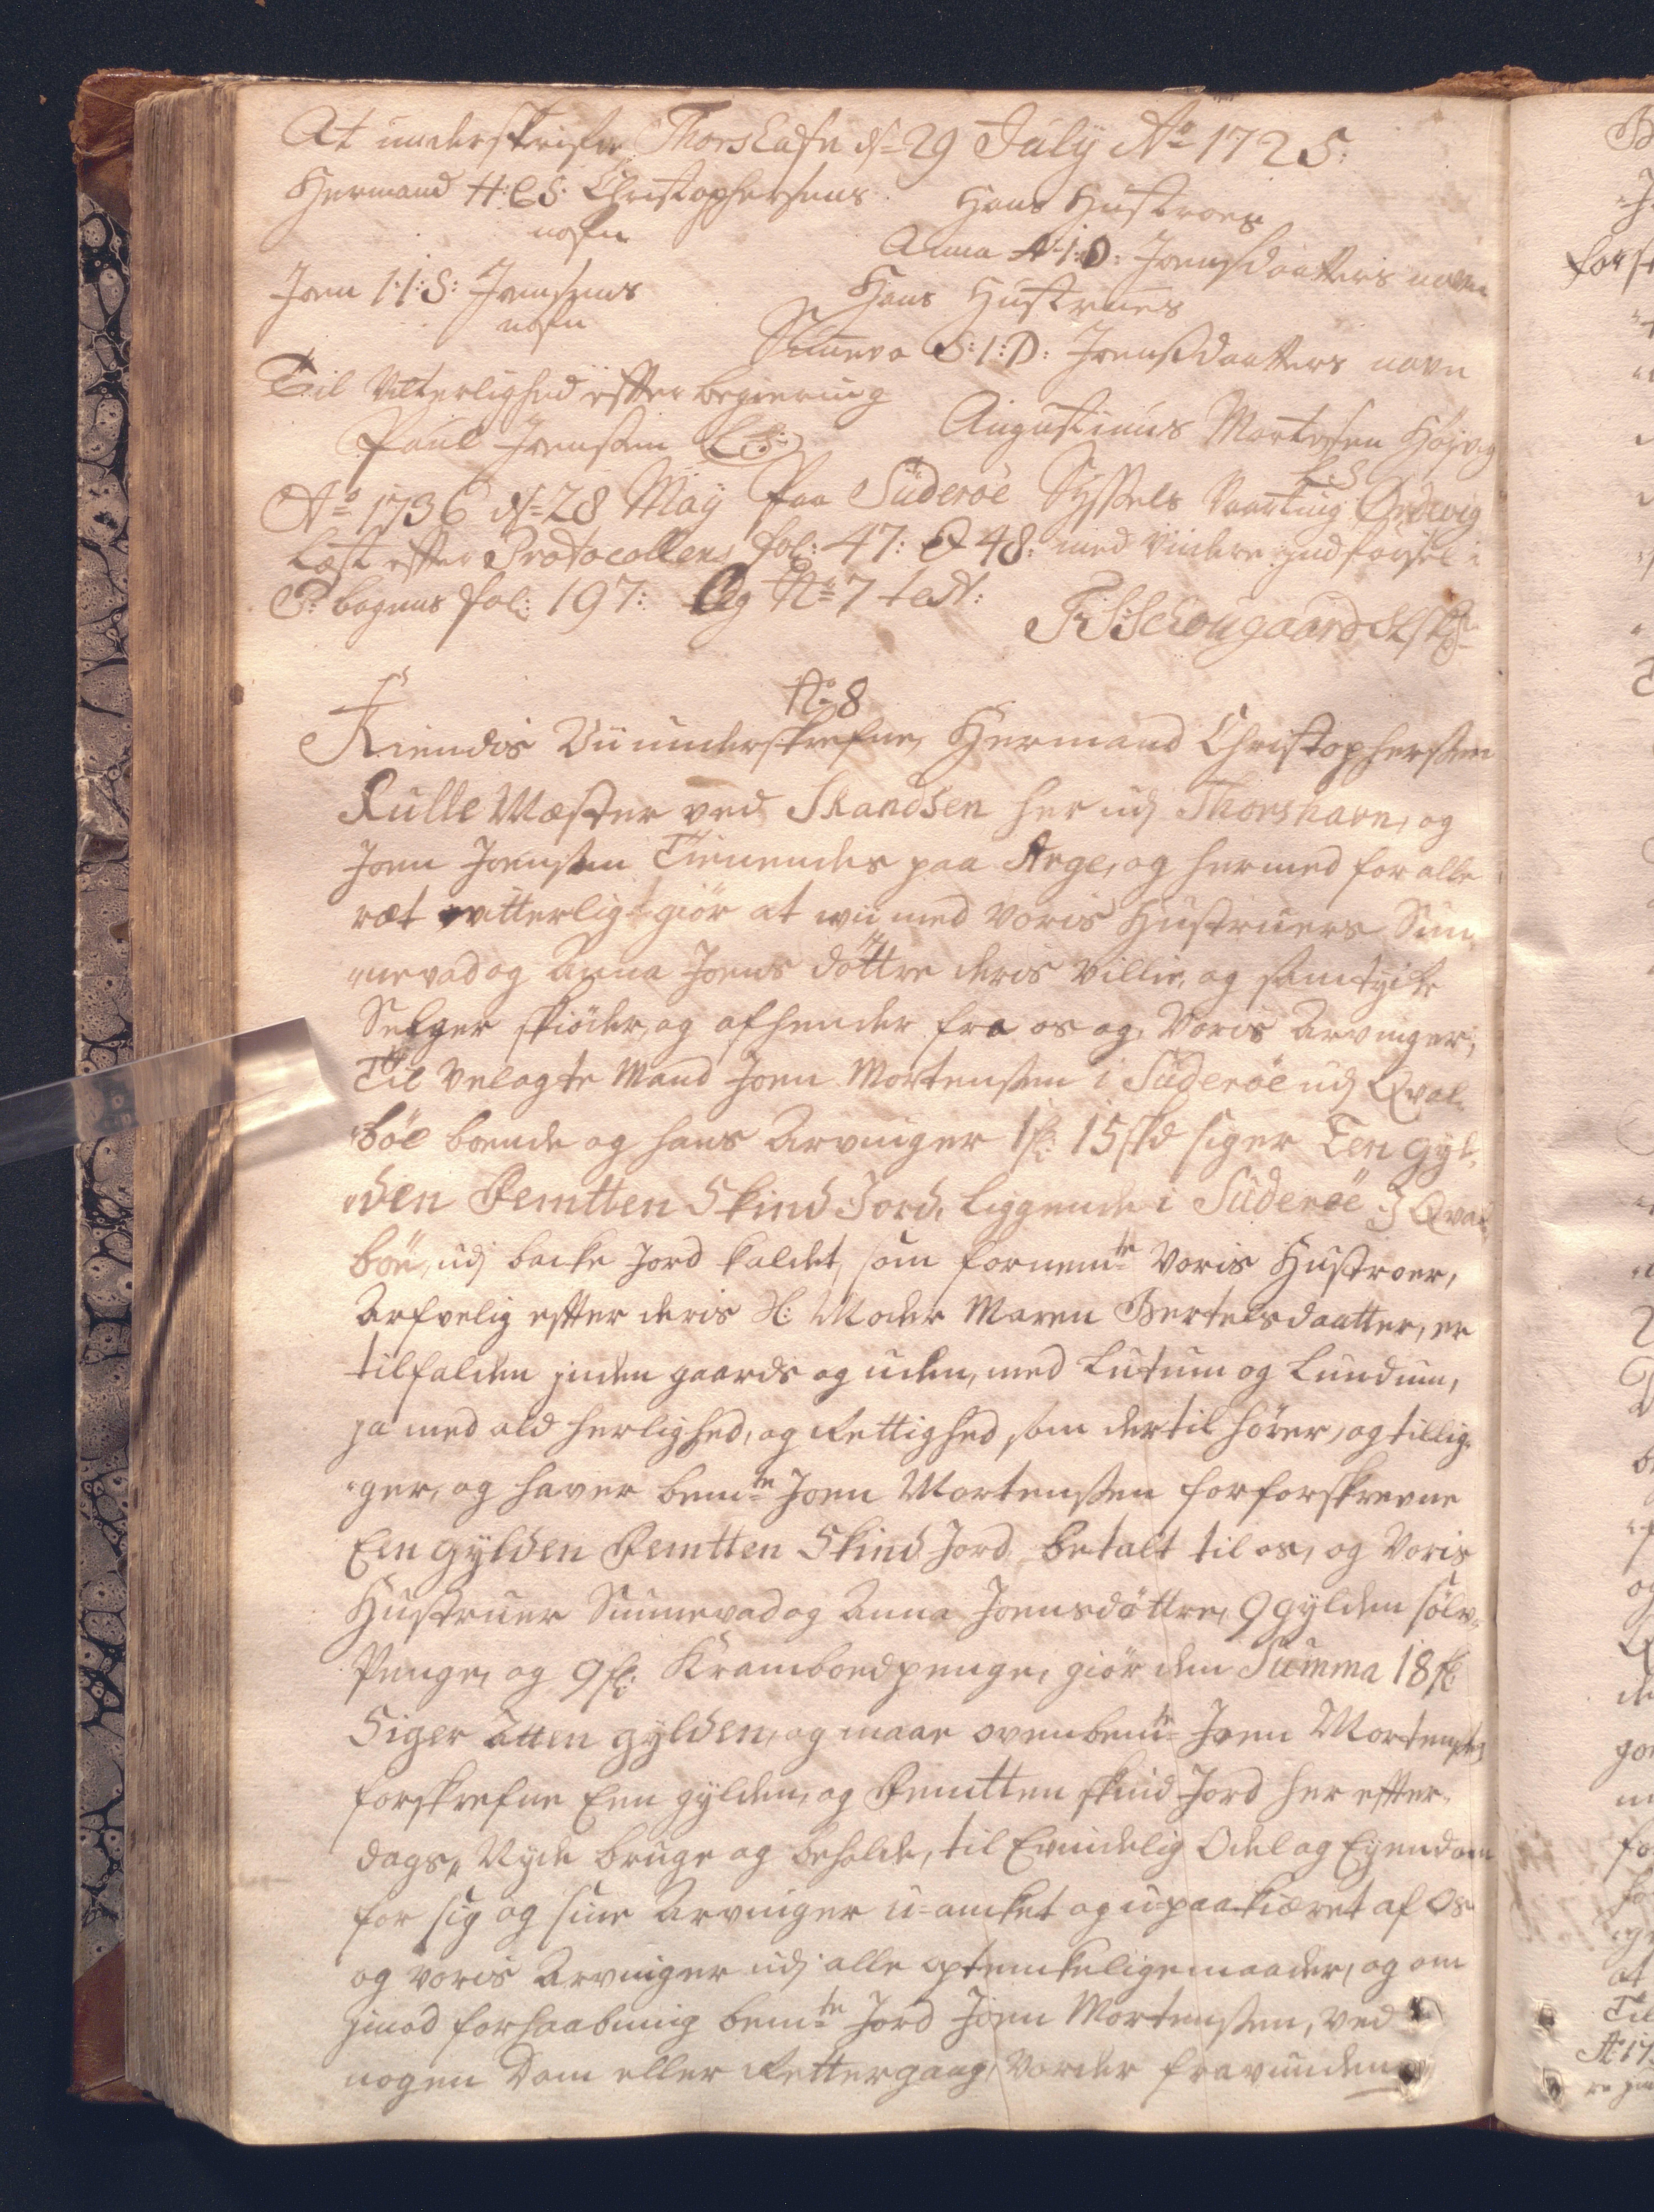 At underskrifve Thorshafn d. 29 July Ao 1725:
Hermand H:C:S: Christophersens Hans Hustroes
nafn Anna A:I:D: Joensdaatters navn
Joen I:I:S: Joensens Hans Hustrues
nafn Sunneva S:I:D: Joensdaatters navn
Til Vitterlighed effter begiering
Paul Joensen (L:S:) Augustinus Mortensen Højvig
L.S.
Ao 1736 d. 28 May paa Süderöe Syssels Vaarting Ørdevig
Læst effter Protocollens fol: 47: & 48: med videre indførsel i
P: bogens fol: 197: Og No 7 test:
Schougaard
No 8
Kiendis Vii underskrefne, Hermand Christophersen
Rulle Mæster ved Skandsen her udj Thorshavn, og
Joen Joensen Tienendes paa Arge, og hermed for alle
ræt vitterligt giör at wii med voris Hustruers Sun-
nevad og Anna Joens döttre deris villie, og samtycke
Selger skiöder, og afhender fra os og Voris Arvinger,
Til Velagte Mand Joen Mortensen i Süderöe udj Qval-
böe boende og hans Arvinger 1 fl: 15 skd siger Een gyl-
den Femtten Skind Jord, liggende i Süderöe I Qval-
böe, udj backe Jord kaldet, som fornemte Voris Hustroer,
Arfvelig effter deris Sl: Moder Maren Bertelsdaatter, er
tilfalden inden gaards og uden, med Lutum og Lundum,
ja med ald herlighed, og Rettighed som dertil hörer, og tillig-
ger, og haver bemte Joen Mortensen for forskrevne
Een gylden Femtten Skind Jord betalt til os, og Voris
Hustruer Sunnevad og Anna Joensdöttre, 9 gylden sölv-
Penge, og 9 fl: Kramboedpenge, giör den Summa 18 fl:
Siger Atten gylden, og maae ovenbemte Joen Mortensen
forskrefne Een gylden, og Femtten skind Jord her effter-
dags, Nyde bruge og beholde, til Evindelig Odel og Eyendom
for sig og sine Arvinger u-anket og u-paakiæret af Os
og voris Arvinger udj alle optenkelige maader, og om
imod forhaabning bemte Jord Joen Mortensen, ved
nogen Dom eller Rettergang, Vorder fravunden